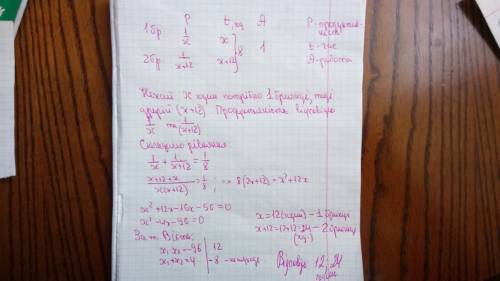 P t, год A P - продуктив-
ність
1 бр. 1/x x 8 1 t - час
2 бр. 1/(x+12) x+12 A - робота
Нехай x годин потрібно 1 бригаді, тоді
другій (x+12). Продуктивність відповідно
1/x та 1/(x+12)
Складемо рівняння
1/x + 1/(x+12) = 1/8
(x+12+x)/(x(x+12)) = 1/8; => 8(2x+12) = x²+12x
x²+12x-16x-96=0
x²-4x-96=0
За т. Вієта:
x₁x₂=-96 | 12
x₁+x₂=4 | -8 -
x=12 (годин) - 1 бригада
x+12=12+12=24 - 2 бригада
(год.)
Відповідь 12, 24